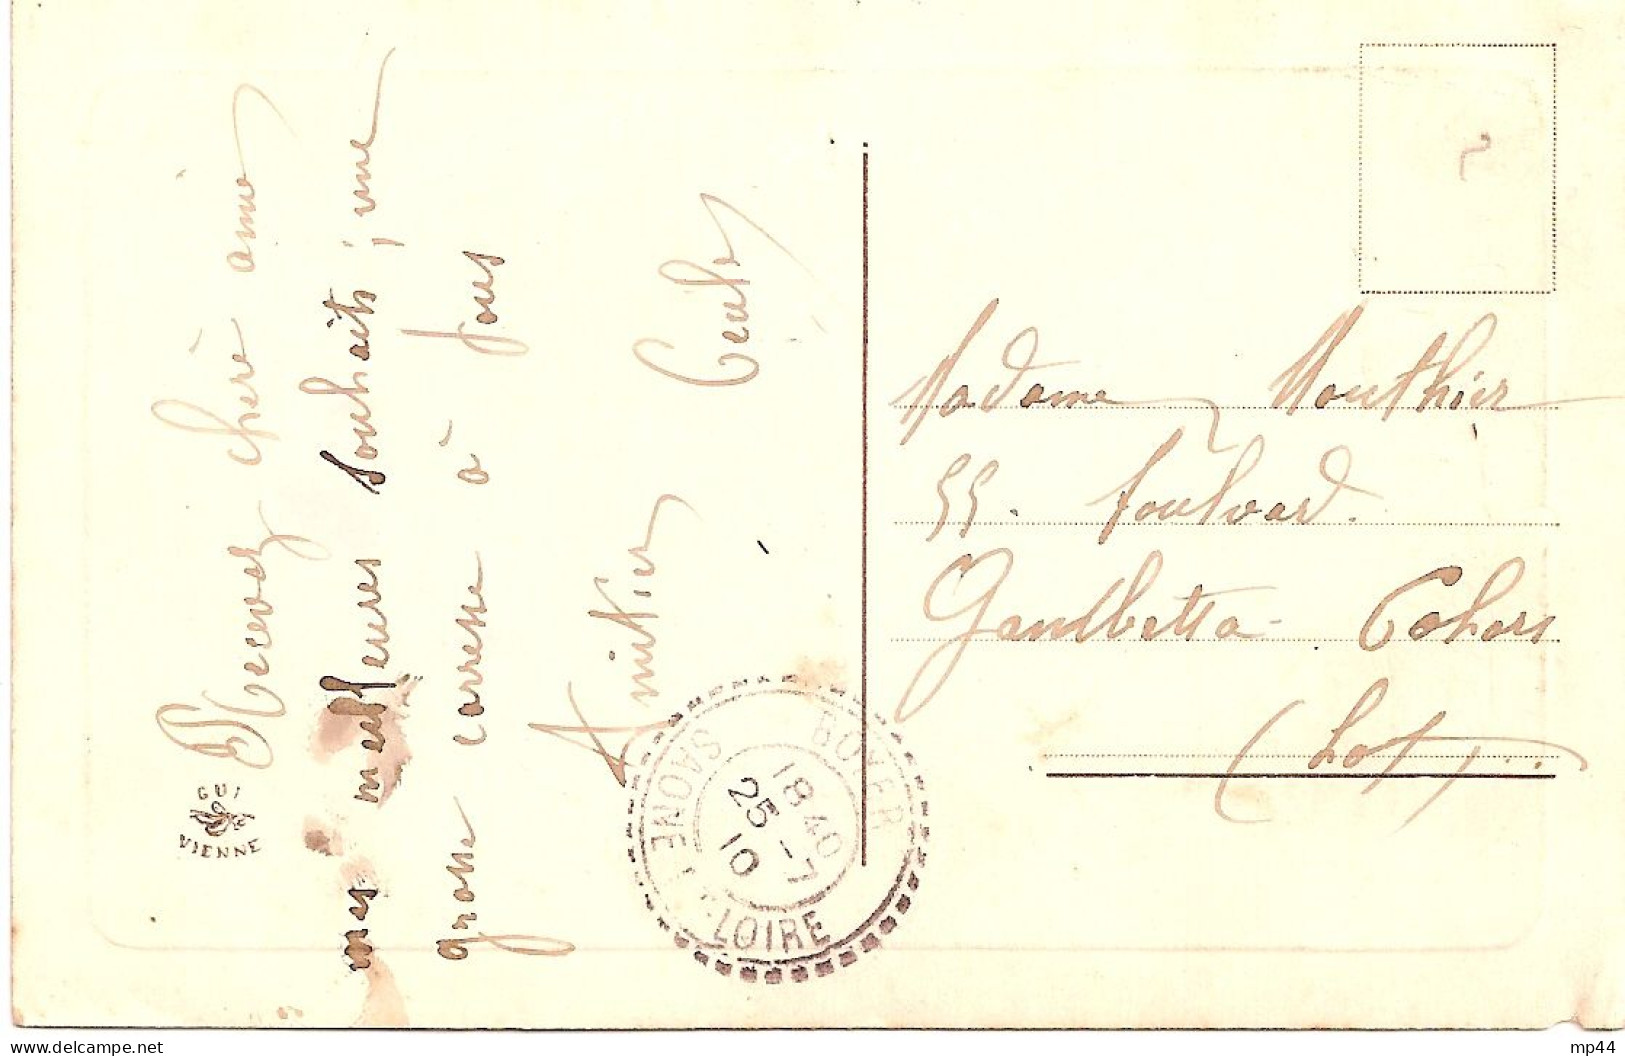 Recevez chère amie
mes meilleures souhaits ; une
grosse carresse à tous
Amitier Cécile
Madame Mouthier
55. boulvard.
Gambetta - Cahors
(Lot)
GUI
VIENNE
BOYER
SAONE-ET-LOIRE
18 40
25 - 7
10
www.delcampe.net
mp44